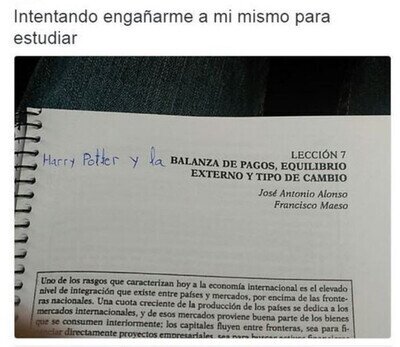 Intentando engañarme a mi mismo para
estudiar
LECCIÓN 7
Harry Potter y la BALANZA DE PAGOS, EQUILIBRIO
EXTERNO Y TIPO DE CAMBIO
José Antonio Alonso
Francisco Maeso
Uno de los rasgos que caracterizan hoy a la economía internacional es el elevado
nivel de integración que existe entre países y mercados, por encima de las fronte-
ras nacionales. Una cuota creciente de la producción de los países se dedica a los
mercados internacionales, y de esos mercados proviene buena parte de los bienes
que se consumen interiormente; los capitales fluyen entre fronteras, sea para fi-
nanciar directamente proyectos empresariales, sea para